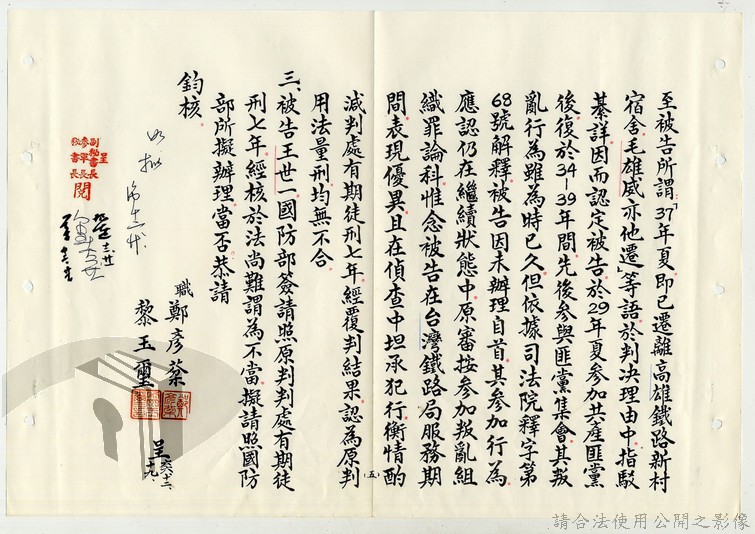 至被告所謂「37年夏即已遷離高雄鐵路新村
宿舍,毛雄威亦他遷」等語於判決理由中指駁
綦詳因而認定被告於29年夏參加共產匪黨
後復於34—39年間先後參與匪黨集會其叛
亂行為雖為時已久但依據司法院釋字第
68號解釋被告因未辦理自首其參加行為
應認仍在繼續狀態中原審按參加叛亂組
織罪論科惟念被告在台灣鐵路局服務期
間表現優異且在偵查中坦承犯行衡情酌
減判處有期徒刑七年經覆判結果認為原判
用法量刑均無不合
三、被告王世一國防部簽請照原判判處有期徒
刑七年經核於法尚難謂為不當擬請照國防
部所擬辦理當否恭請
鈞核
職 鄭彥棻
黎玉璽 呈
如擬
呈
副秘書長
參軍長
秘書長
閱
(五)
請合法使用公開之影像